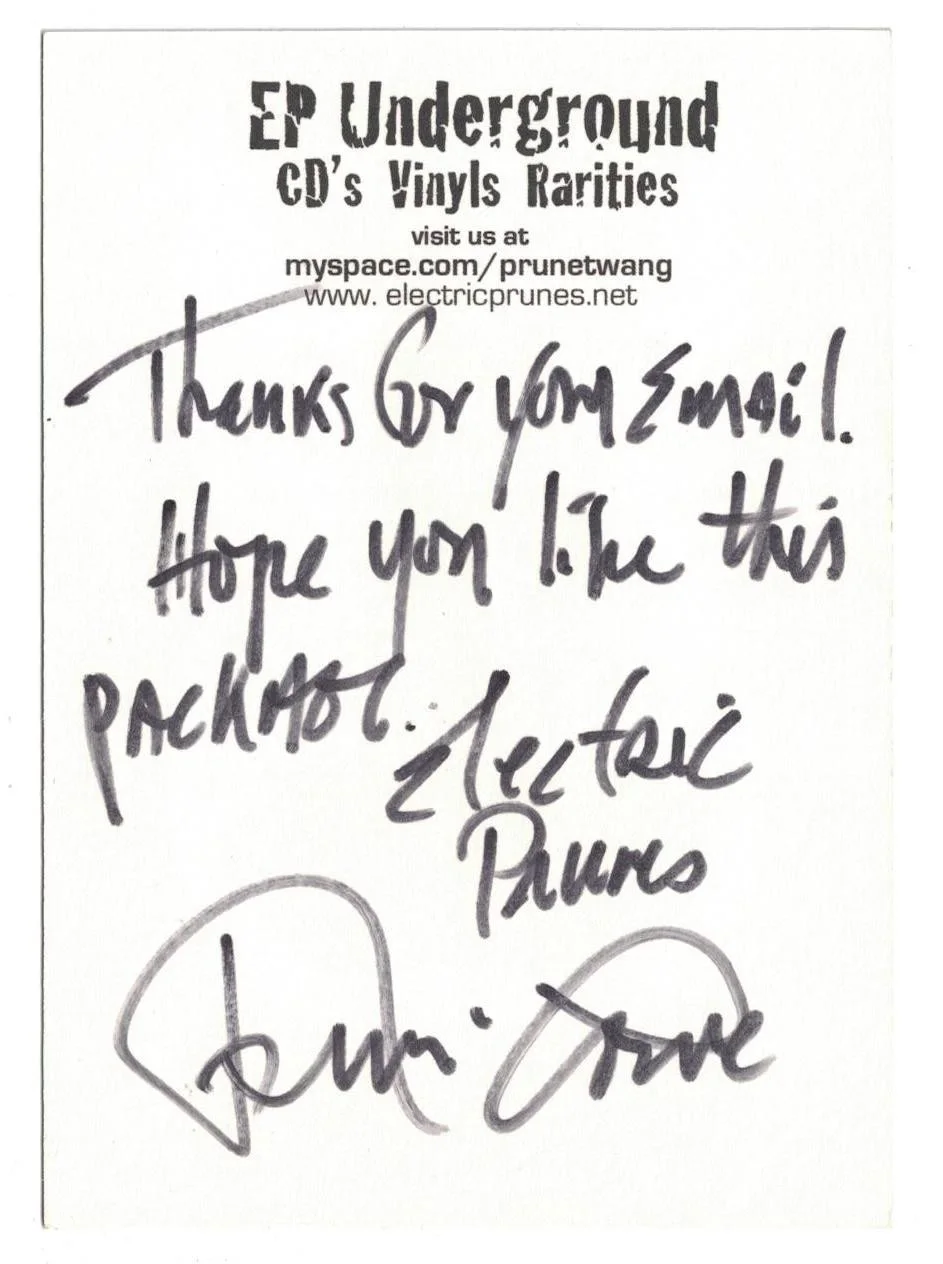 EP Underground
CD's Vinyls Rarities
visit us at
myspace.com/prunetwang
www. electricprunes.net
Thanks for your Email.
Hope you like this
PACKAGE.
Electric
Prunes